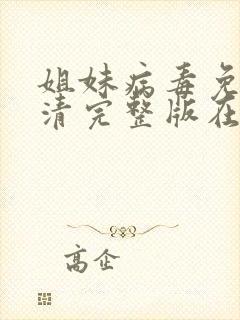 姐妹病毒免
清完整版在
高企